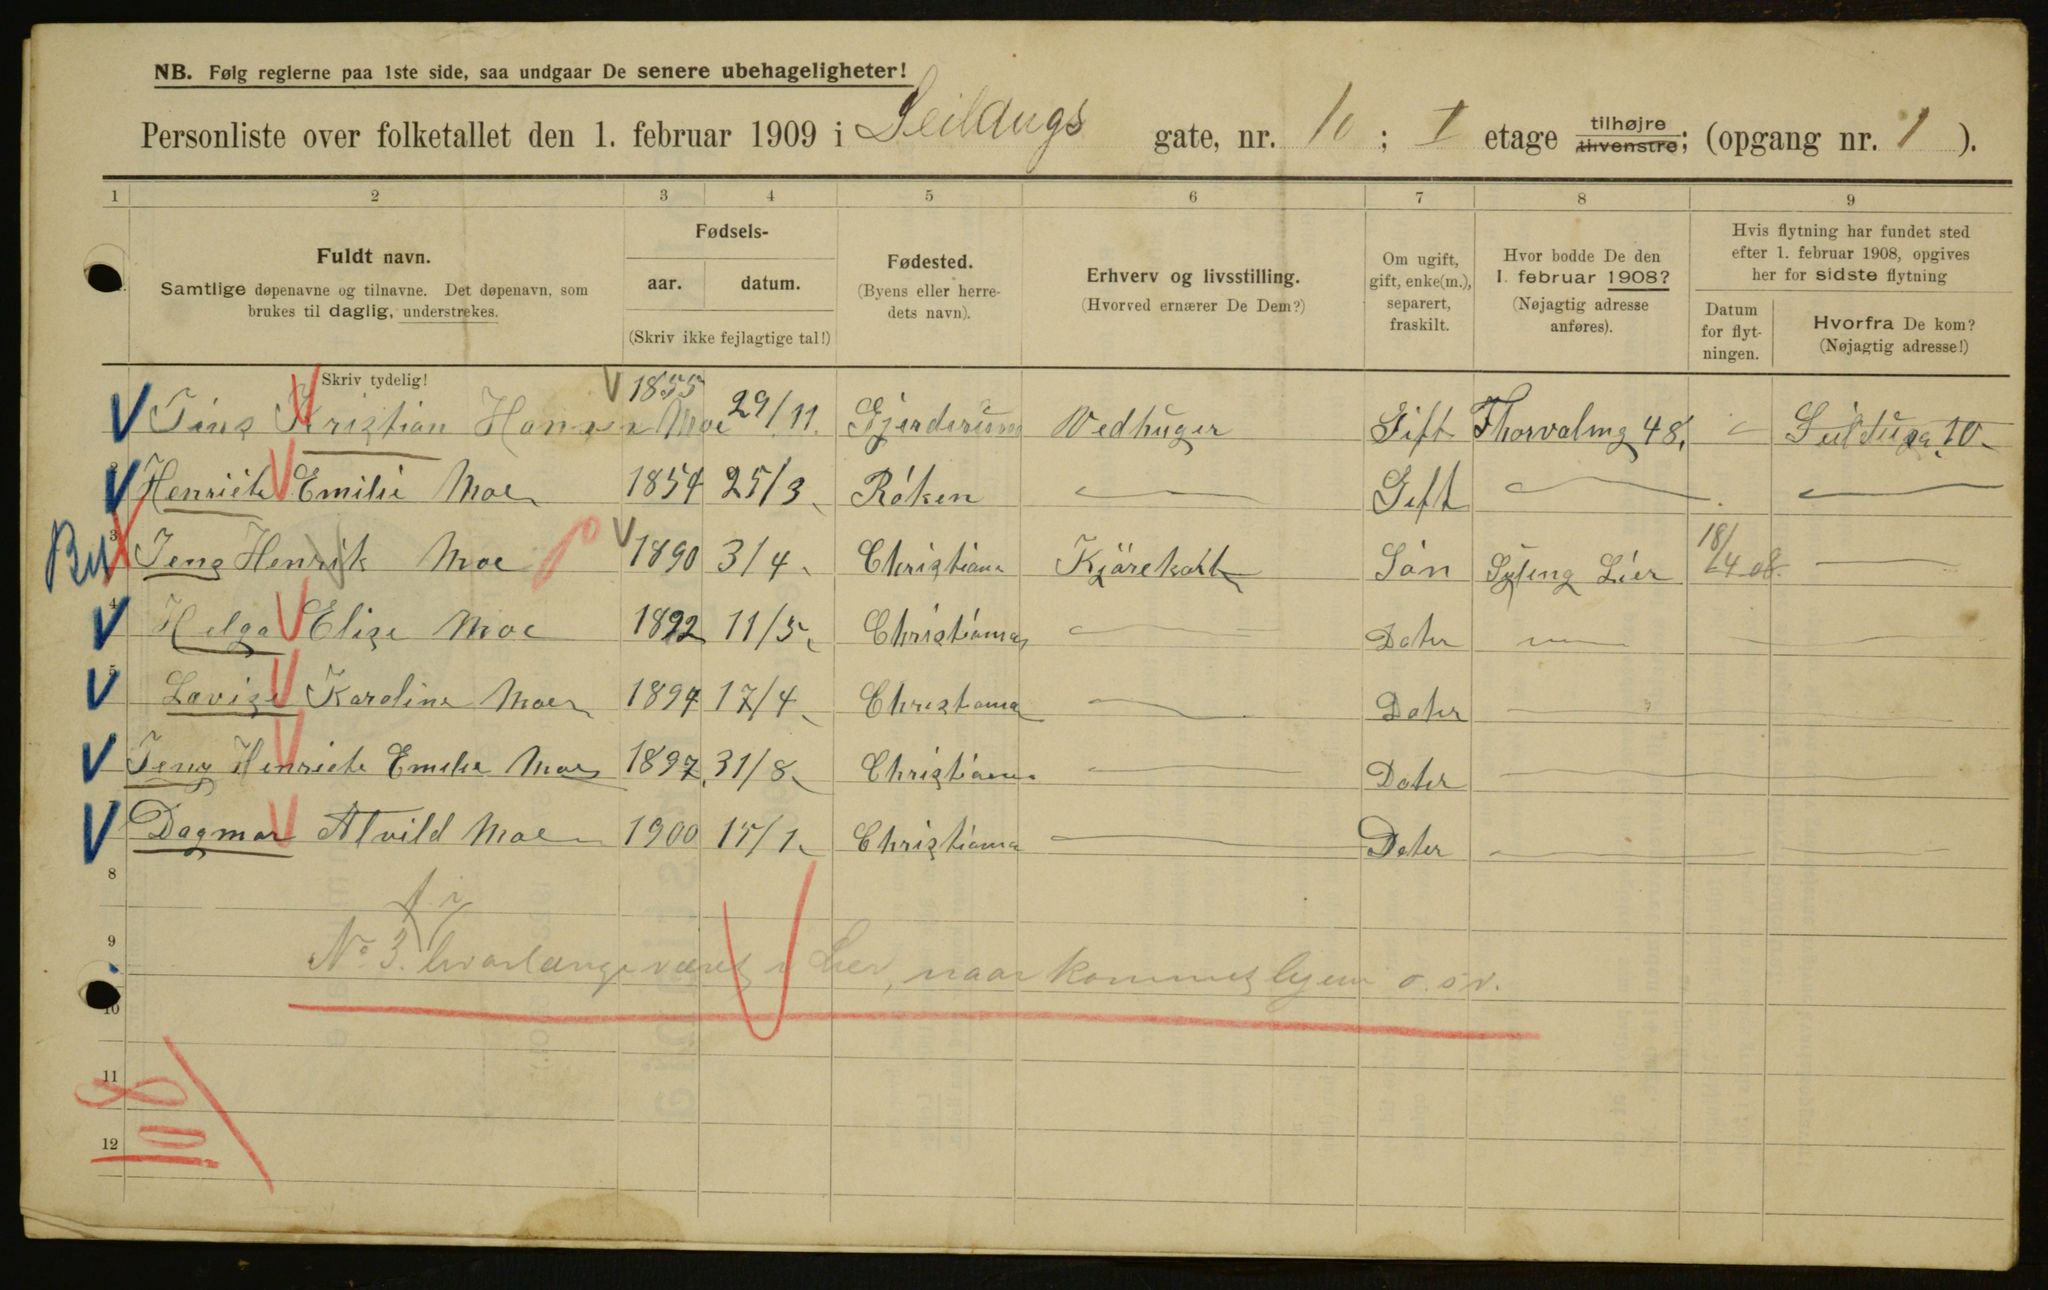 NB. Følg reglerne paa 1ste side, saa undgaar De senere ubehageligheter!
Personliste over folketallet den 1. februar 1909 i Seildugs gate, nr. 10; I etage tilhøjre tilvenstre; (opgang nr. 1).
1 2 3 4 5 6 7 8 9
Fuldt navn.
Samtlige døpenavne og tilnavne. Det døpenavn, som
brukes til daglig, understrekes.
Skriv tydelig!
Fødsels-
aar. datum.
(Skriv ikke fejlagtige tal!)
Fødested.
(Byens eller herre-
dets navn).
Erhverv og livsstilling.
(Hvorved ernærer De Dem?)
Om ugift,
gift, enke(m.),
separert,
fraskilt.
Hvor bodde De den
1. februar 1908?
(Nøjagtig adresse
anføres).
Hvis flytning har fundet sted
efter 1. februar 1908, opgives
her for sidste flytning
Datum
for flyt-
ningen.
Hvorfra De kom?
(Nøjagtig adresse!)
Jens Kristian Hansen Moe 1855 29/11. Gjerdrum Vedhuger Gift Thorvalmg 48. Seildugg. 10
2 Henriete Emilie Moe 1854 25/3 Røken Gift
3 Jens Henrik Moe 1890 3/4 Christiana Kjørekarl Søn Sylling Lier 18/4 08.
4 Helga Elise Moe 1892 11/5 Christiania Dater
5 Lovise Karoline Moe 1894 17/4 Christiania Dater
Jeny Henriete Emelie Moe 1897 31/8 Christiania Dater
Dagmar Alvild Moe 1900 15/1 Christiania Dater
8
9
No 3. hvorlænge været i Lier, naar kommet hjem o. s. v.
10
11
12